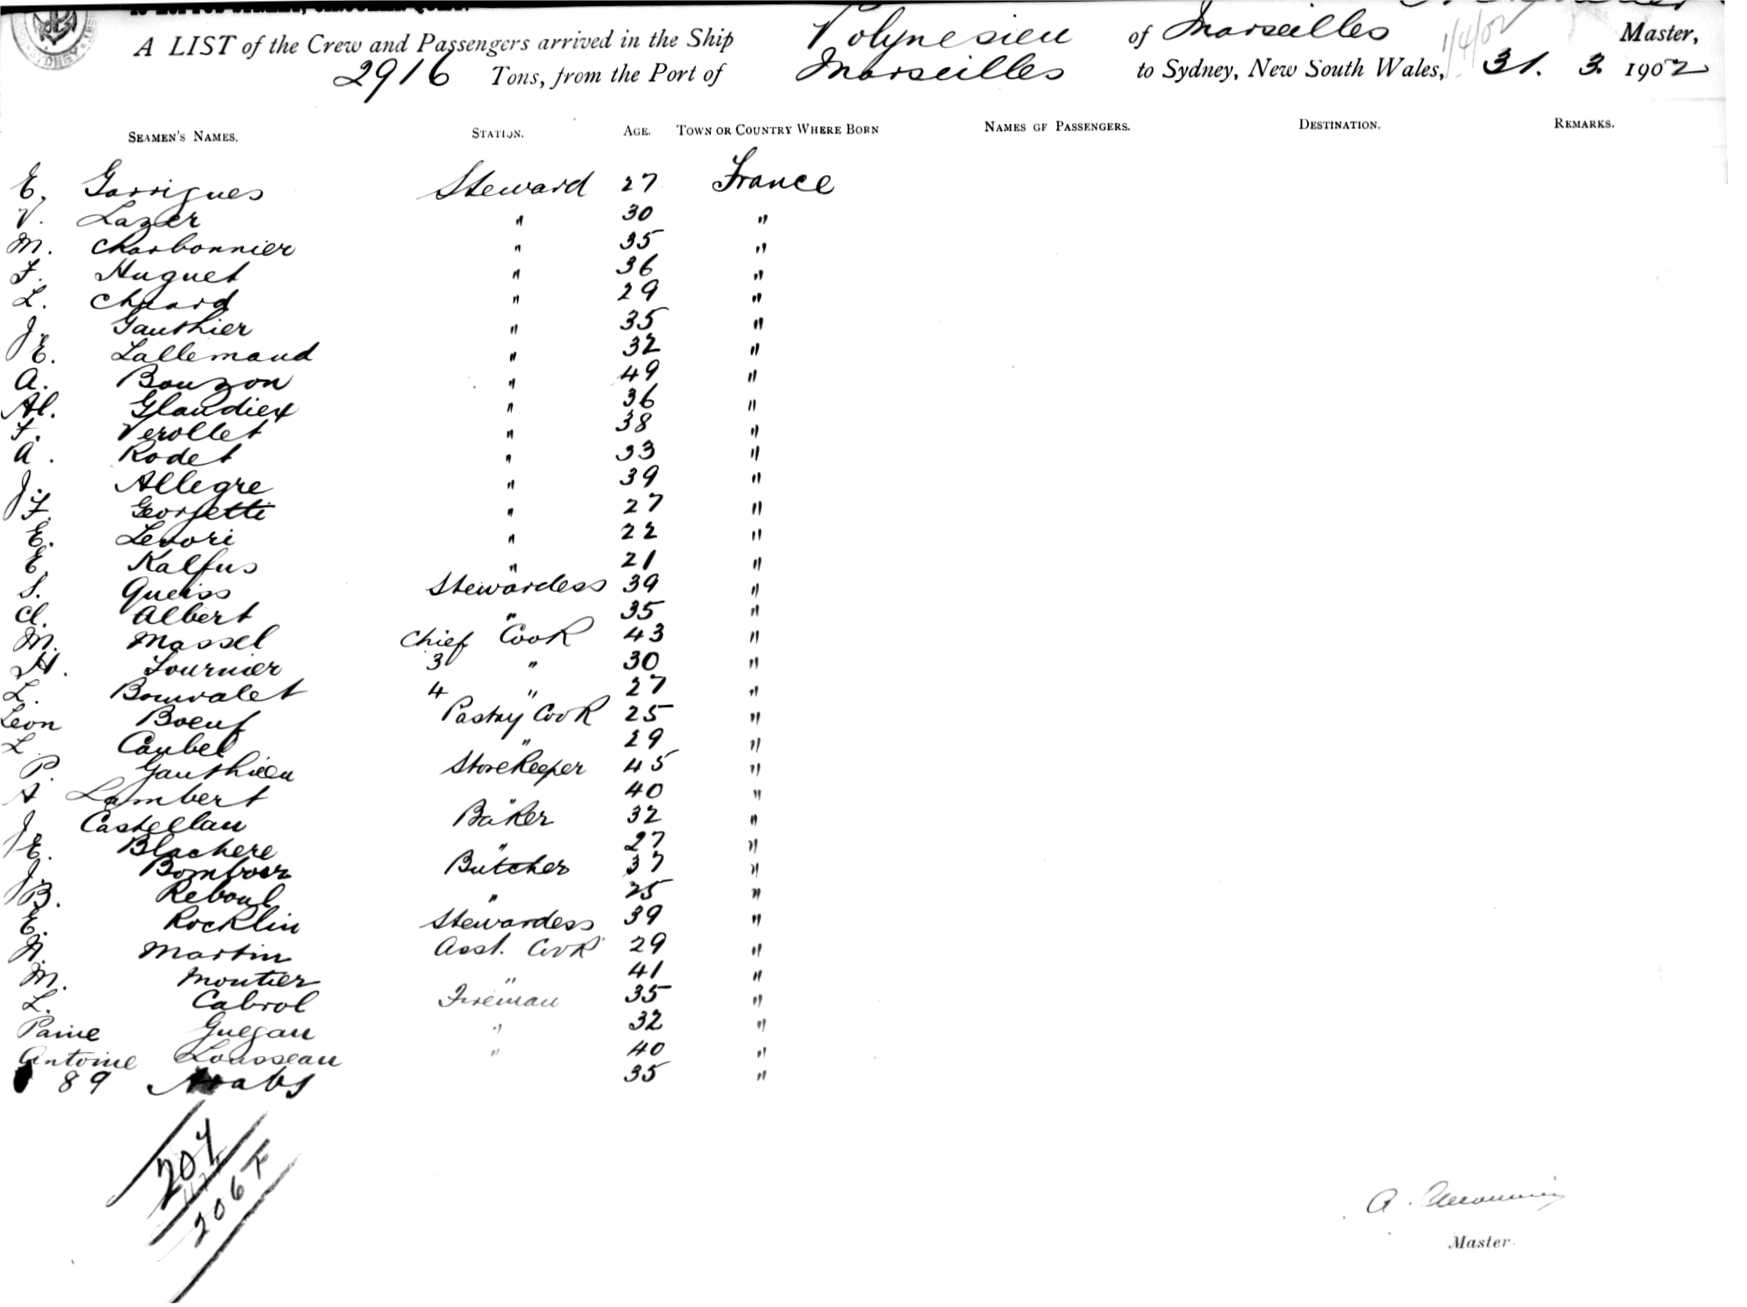 A LIST of the Crew and Passengers arrived in the Ship Polynesien of Marseilles Master,
2916 Tons, from the Port of Marseilles to Sydney, New South Wales, 31. 3. 1902
1/4/02
SEAMEN'S NAMES. STATION. AGE. TOWN OR COUNTRY WHERE BORN NAMES OF PASSENGERS. DESTINATION. REMARKS.
E. Garrigues Steward 27 France
V. Lazer " 30 "
M. Charbonnier " 35 "
F. Huguet " 36 "
L. Chuard " 29 "
J. Gauthier " 35 "
E. Lallemand " 32 "
A. Bouzon " 49 "
Al. Glaudiex " 36 "
F. Verollet " 38 "
A. Rodet " 33 "
J. Allegre " 39 "
F. Georgetti " 27 "
E. Levori " 22 "
E. Kalfus " 21 "
S. Queiss Stewardess 39 "
Cl. Albert " 35 "
M. Massel Chief Cook 43 "
H. Fournier 3 " 30 "
L. Bonvalet 4 " 27 "
Leon Boeuf Pastry Cook 25 "
L. Caubel " 29 "
P. Gauthier Storekeeper 45 "
A Lambert " 40 "
J. Castellan Baker 32 "
E. Blachere " 27 "
J. Butcher 37 "
B. Reboul " 25 "
E. Rocklin Stewardess 39 "
N. Martin Asst. Cook 29 "
M. Moutier " 41 "
L. Cabrol Fireman 35 "
Guegan " 32 "
Antoine Lousseau " 40 "
89 Arabs 35 "
204
206 F
A.
Master.